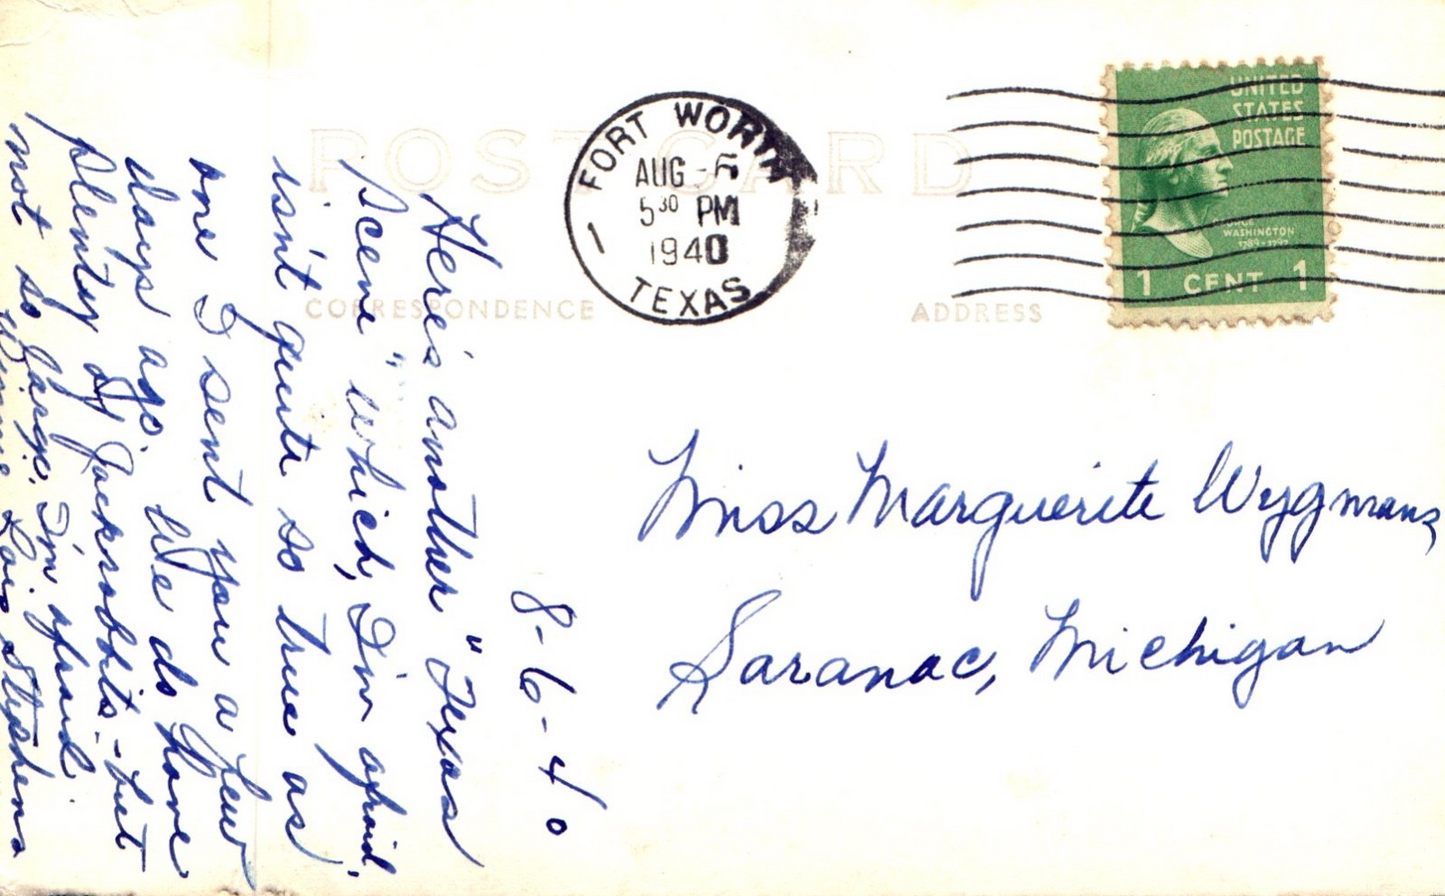 POST CARD
CORRESPONDENCE
ADDRESS
FORT WORTH
AUG -6
5 30 PM
1940
1
TEXAS
UNITED
STATES
POSTAGE
GEORGE
WASHINGTON
1789-1797
1 CENT 1
8-6-40
Here's another "Texas
scene" which, I'm afraid,
isn't quite so true as
one I sent you a few
days ago. We do have
plenty of jackrabbits - but
not so large, I'm afraid.
Lois Stephens
Miss Marguerite Wygmans
Saranac, Michigan